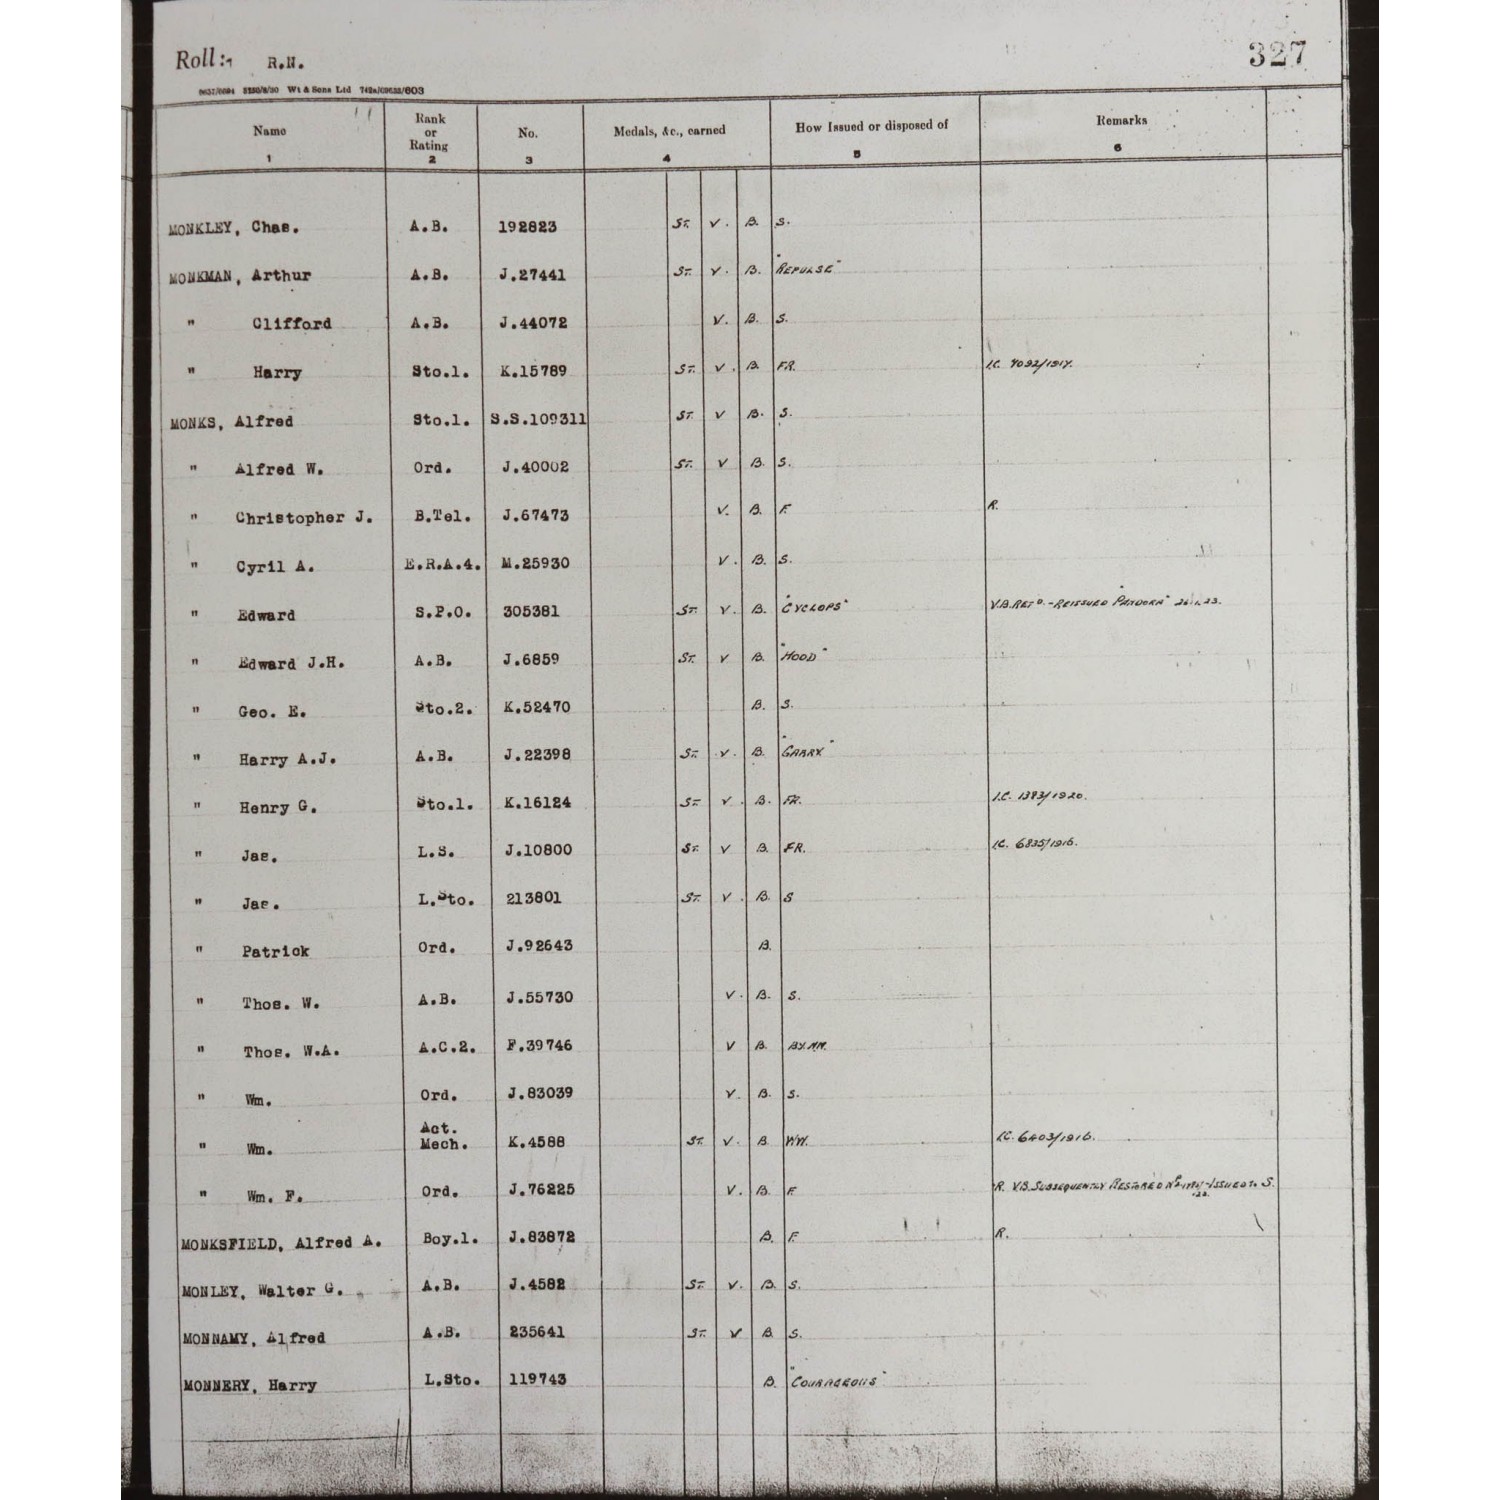 Roll:- R.N. 327
Wt & Sons Ltd
Name Rank or Rating No. Medals, &c., earned How Issued or disposed of Remarks
1 2 3 4 5 6
MONKLEY, Chas. A.B. 192823 ST. V. B. S.
MONKMAN, Arthur A.B. J.27441 ST. V. B. "REPULSE"
" Clifford A.B. J.44072 V. B. S.
" Harry Sto.1. K.15789 ST. V. B. FR. I.C. 4092/1917.
MONKS, Alfred Sto.1. S.S.109311 ST. V B. S.
" Alfred W. Ord. J.40002 ST. V B. S.
" Christopher J. B.Tel. J.67473 V. B. F. R.
" Cyril A. E.R.A.4. M.25930 V. B. S.
" Edward S.P.O. 305381 ST. V. B. "CYCLOPS" V.B. RETD. - REISSUED "PANDORA"
" Edward J.H. A.B. J.6859 ST. V B. "HOOD"
" Geo. E. Sto.2. K.52470 B. S.
" Harry A.J. A.B. J.22398 ST. V. B. "GARRY"
" Henry G. Sto.1. K.16124 ST V. B. FR. I.C. 1383/1920.
" Jas. L.S. J.10800 ST. V B. FR. I.C. 6835/1916.
" Jas. L.Sto. 213801 ST. V. B. S
" Patrick Ord. J.92643 B.
" Thos. W. A.B. J.55730 V. B. S.
" Thos. W.A. A.C.2. F.39746 V B.
" Wm. Ord. J.83039 V. B. S.
Act.
" Wm. Mech. K.4588 ST. V. B WW. I.C. 6403/1916.
" Wm. F. Ord. J.76225 V. B. F R. V.B. SUBSEQUENTLY RESTORED ISSUED TO S.
MONKSFIELD, Alfred A. Boy.1. J.83872 B. F. R.
MONLEY, Walter G. A.B. J.4582 ST. V. B. S.
MONNAMY, Alfred A.B. 235641 ST. V B S.
MONNERY, Harry L.Sto. 119743 B. "COURAGEOUS"